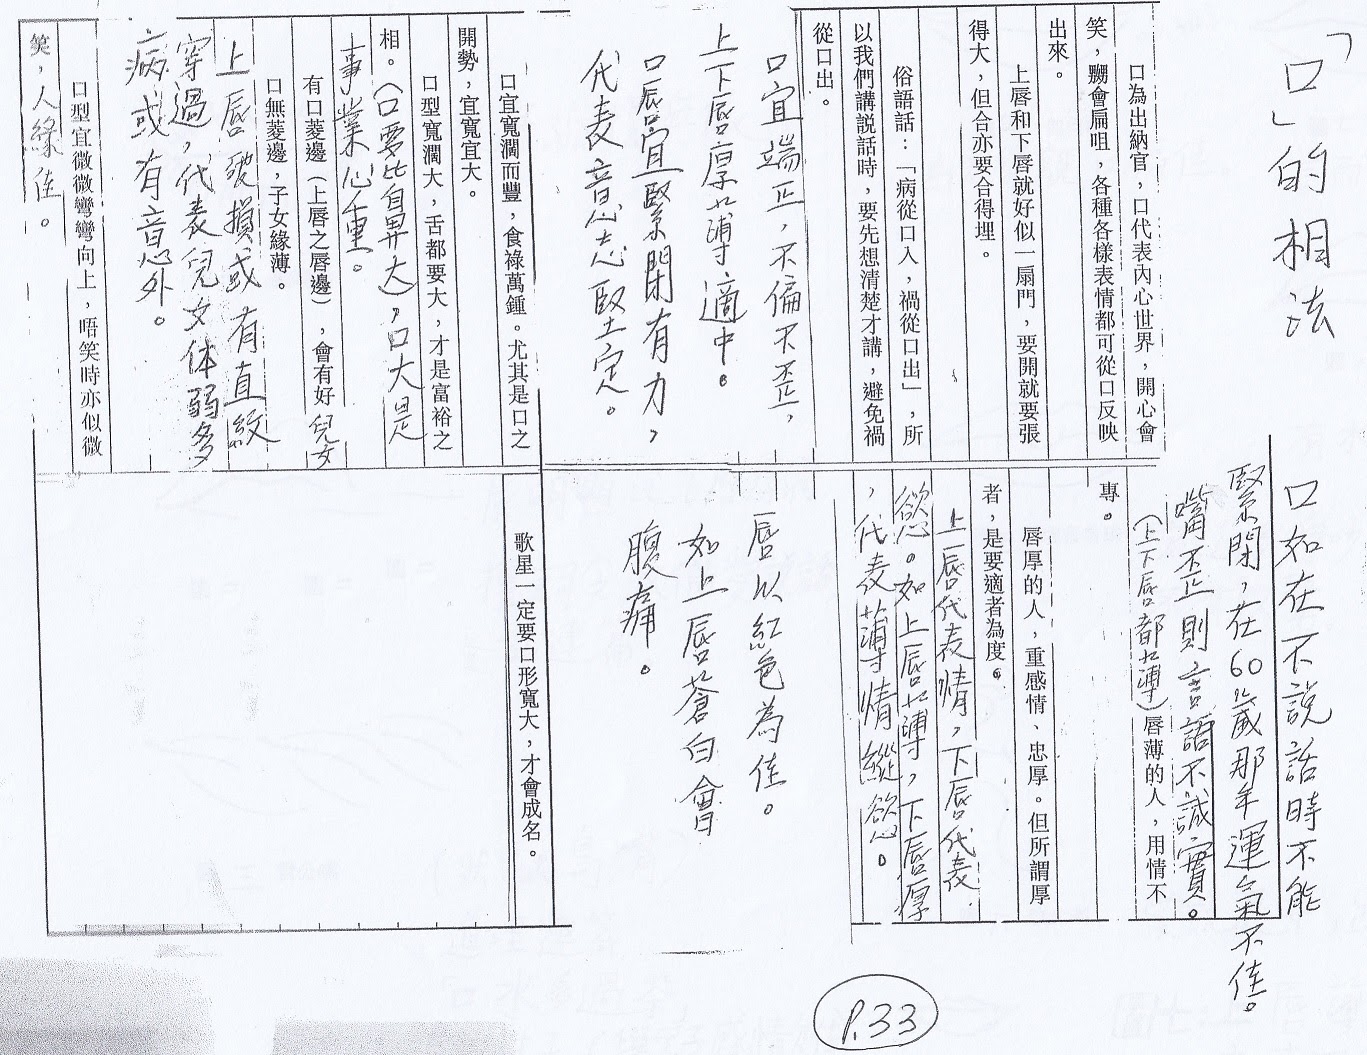 「口」的相法
口為出納官，口代表內心世界，開心會
笑，嬲會扁咀，各種各樣表情都可從口反映
出來。
上唇和下唇就好似一扇門，要開就要張
得大，但合亦要合得埋。
俗語話：「病從口入，禍從口出」，所
以我們講說話時，要先想清楚才講，避免禍
從口出。
口宜端正，不偏不歪，
上下唇厚薄適中。
口唇宜緊閉有力，
代表意志堅定。
口宜寬濶而豐，食祿萬鍾。尤其是口之
開勢，宜寬宜大。
口型寬濶大，舌都要大，才是富裕之
相。（口要比鼻大），口大是
事業心重。
有口菱邊（上唇之唇邊），會有好兒女
口無菱邊，子女緣薄。
上唇破損或有直紋
穿過，代表兒女体弱多
病或有意外。
口型宜微微彎彎向上，唔笑時亦似微
笑，人緣佳。
口如在不說話時不能
緊閉，在60歲那年運氣不佳。
嘴歪則言語不誠實。
（上下唇都薄）唇薄的人，用情不
專。
唇厚的人，重感情、忠厚。但所謂厚
者，是要適者為度。
上唇代表情，下唇代表
慾。如上唇薄，下唇厚
，代表薄情縱慾。
唇以紅色為佳。
如上唇蒼白會
腹痛。
歌星一定要口形寬大，才會成名。
P.33